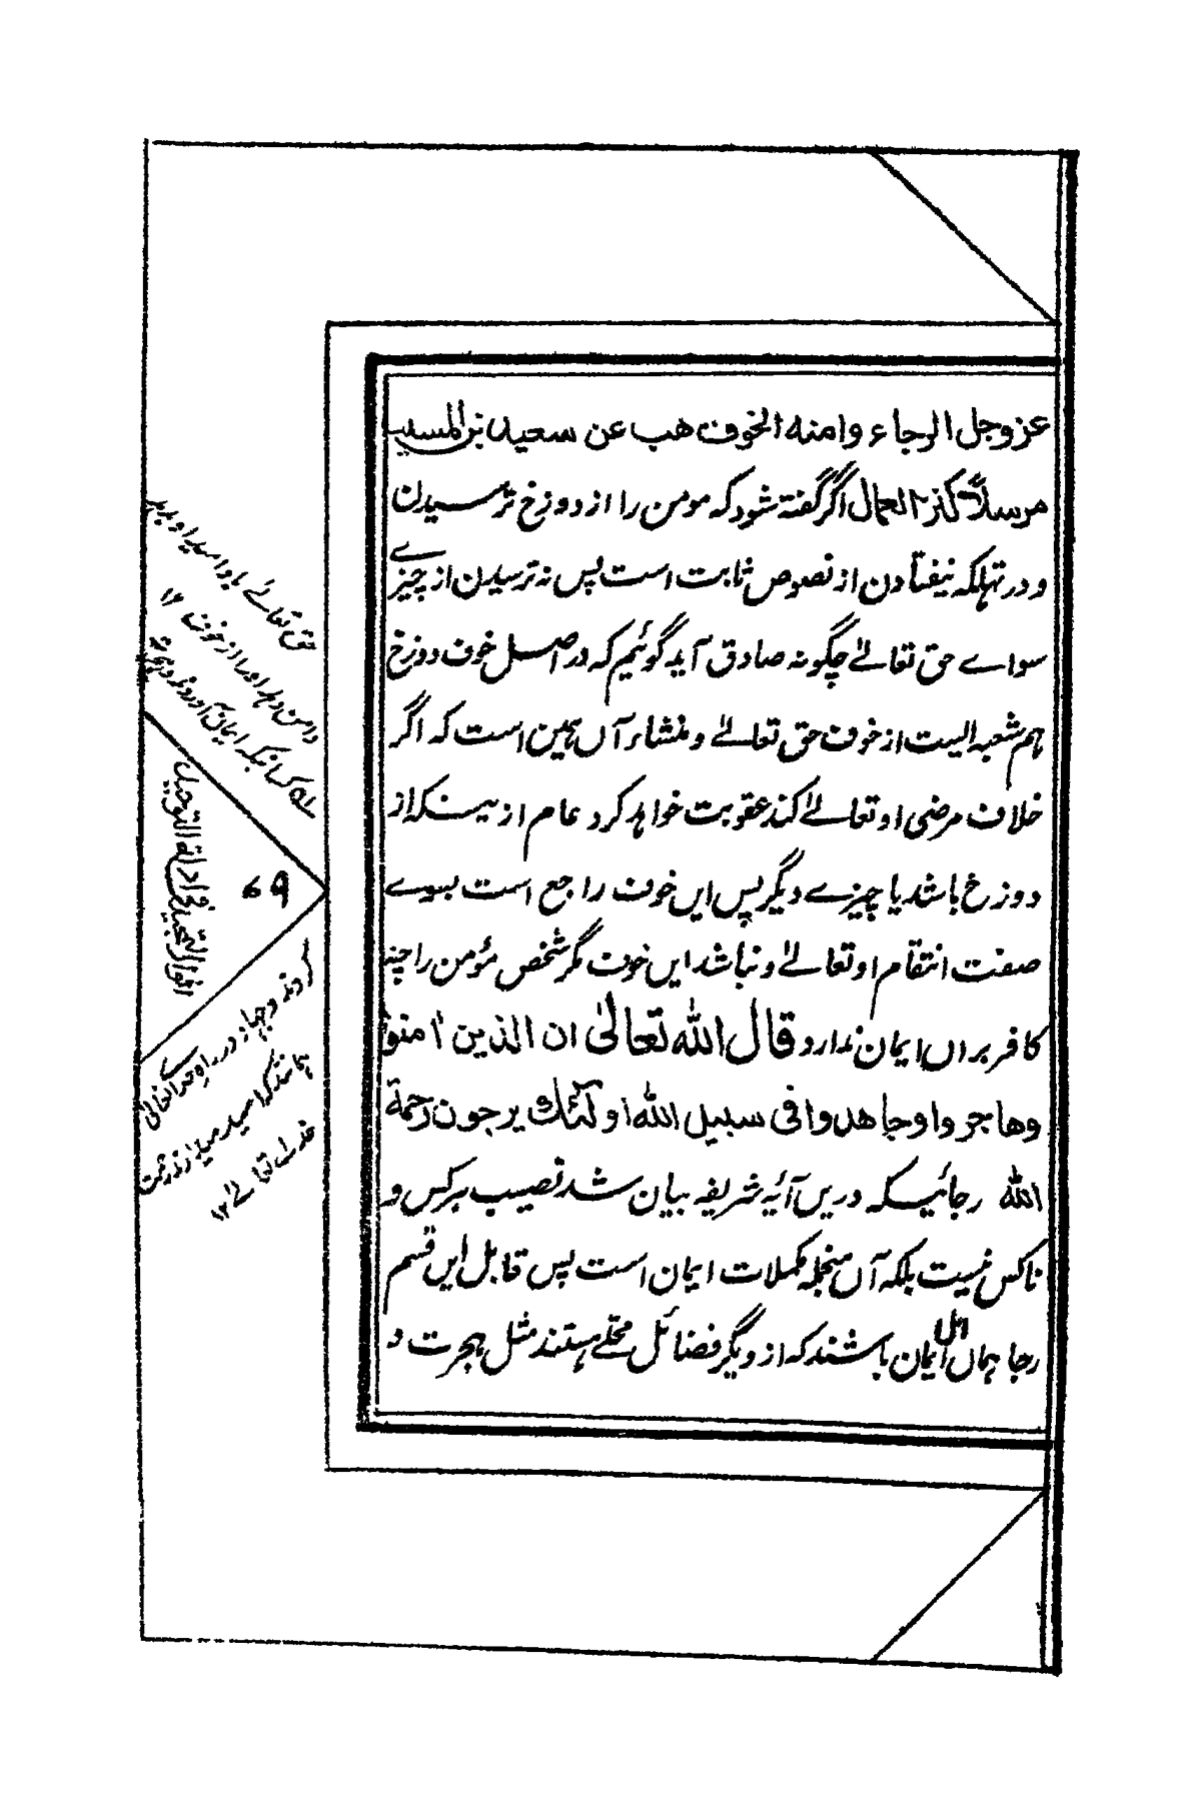 عزوجل الرجاء وامنه الخوف هب عن سعيد بن المسيب
مرسلاً كنز العمال اگر گفته شود که مومن را از دوزخ ترسیدن
و در تهلکه نیفتادن از نصوص ثابت است پس نه ترسیدن از چیزے
سواے حق تعالےٰ چگونه صادق آید گوئیم که در اصل خوف دوزخ
هم شعبه ایست از خوف حق تعالےٰ و منشاء آں همین است که اگر
خلاف مرضی او تعالےٰ کند عقوبت خواهد کرد عام از ینکه از
دوزخ باشد یا چیزے دیگر پس ایں خوف راجع است بسوے
صفت انتقام او تعالےٰ و نباشد ایں خوف مگر شخص مؤمن را چنه
کافر براں ایمان ندارد قال الله تعالىٰ ان الذين اٰمنوا
وهاجروا وجاهدوا فی سبیل الله اولٰئك یرجون رحمة
الله رجائیکه دریں آئیه شریفه بیان شد نصیب هر کس و
ناکس نیست بلکه آں منجمله مکملات ایمان است پس قابل ایں قسم
رجا هماں اهل ایمان باشند که از دیگر فضائل محلے هستند مثل هجرت و
حق تعالےٰ با و امید او بدهد
و امن دهد او را از خوف ۱۲
کسانیکه ایمان آوردند و هجرت
کردند و جهاد در راهِ خداے تعالیٰ
همانند که امید میدارند رحمت
خداے تعالےٰ ۱۲
انوار التمجید فی ادلة التوحید
۶۹